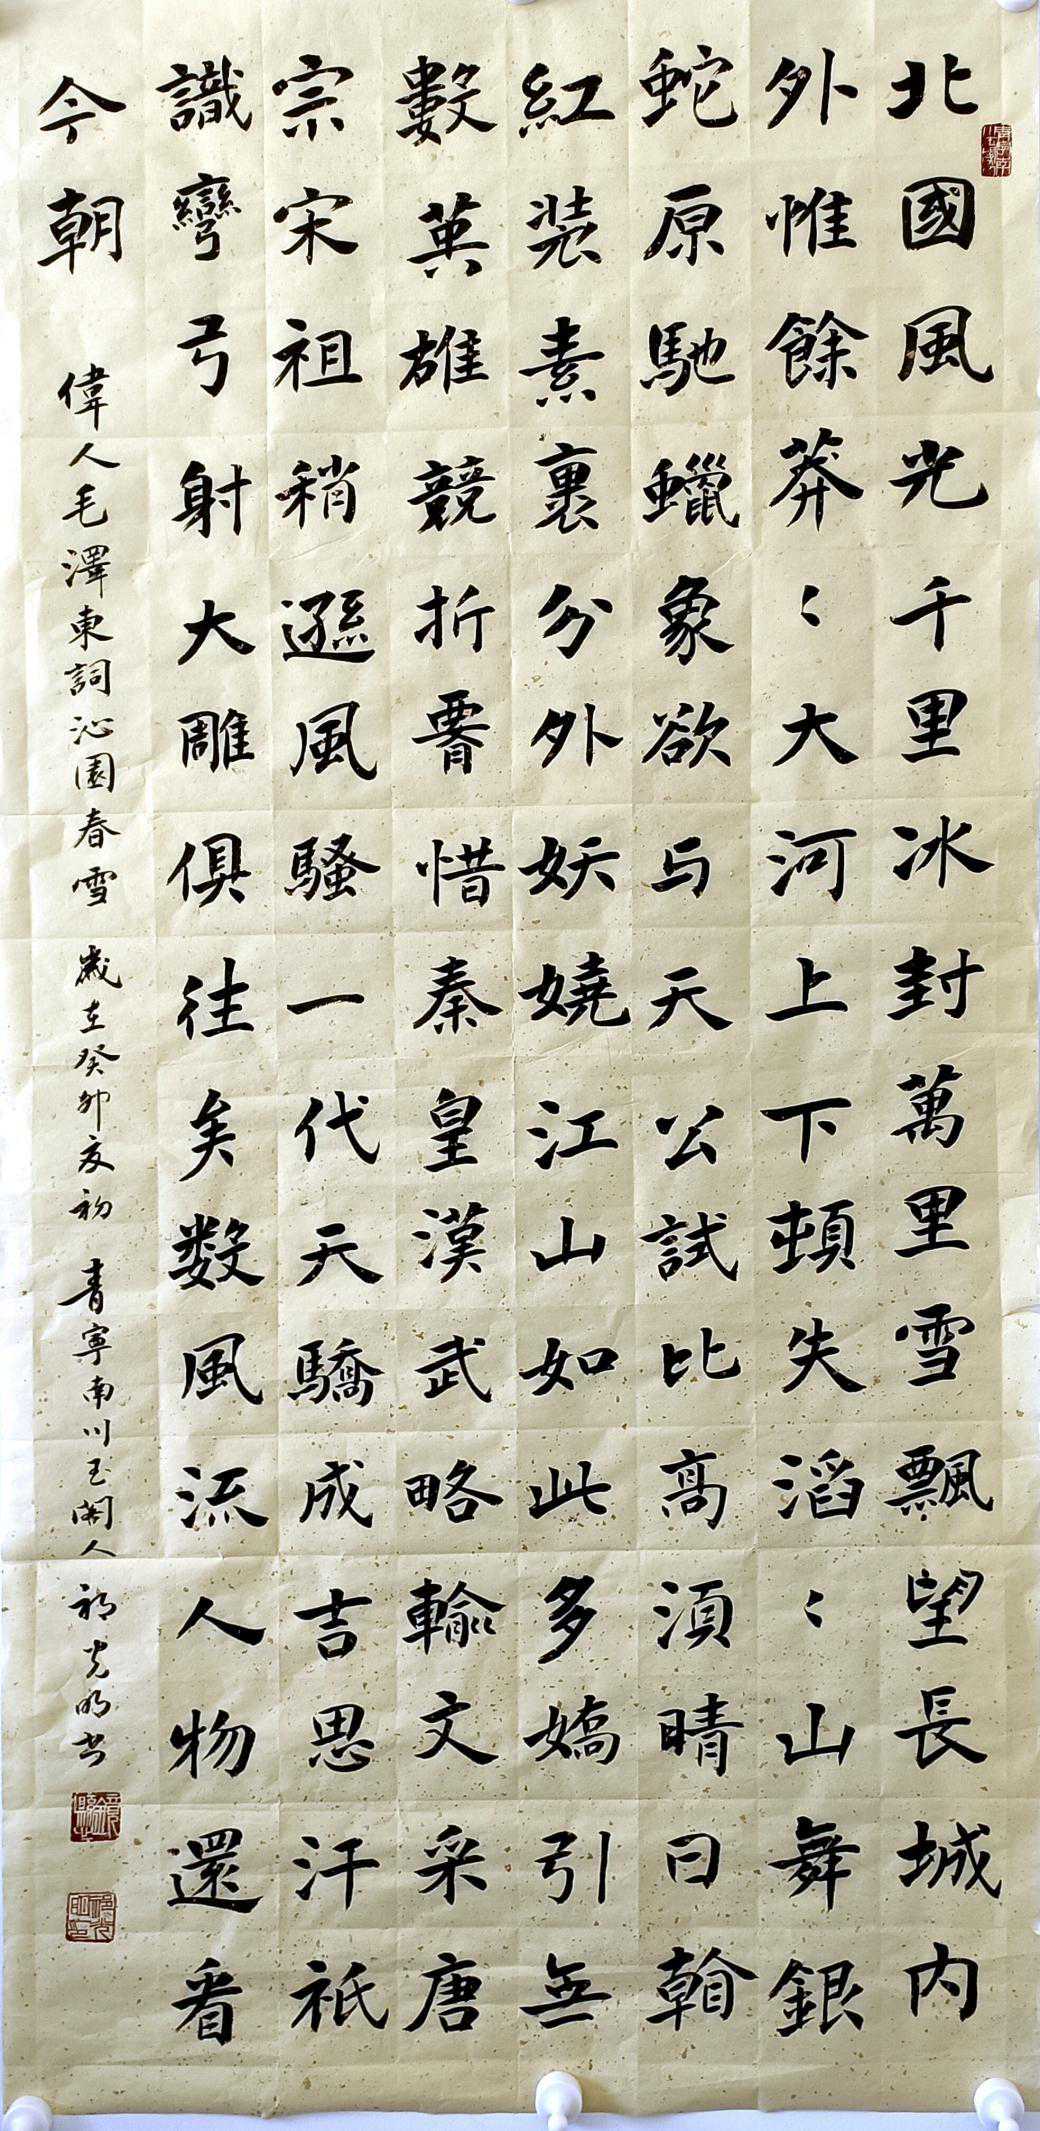 北國風光千里冰封萬里雪飄望長城内
外惟餘莽〻大河上下頓失滔〻山舞銀
蛇原馳蠟象欲与天公試比高須晴日翰
紅装素裹分外妖嬈江山如此多嬌引無
數英雄競折腰惜秦皇漢武略輸文采唐
宗宋祖稍遜風騷一代天驕成吉思汗祇
識彎弓射大雕俱往矣数風流人物還看
今朝
偉人毛澤東詞沁園春雪 歲在癸卯夏初 青寧南川玉閑人 祁光明书